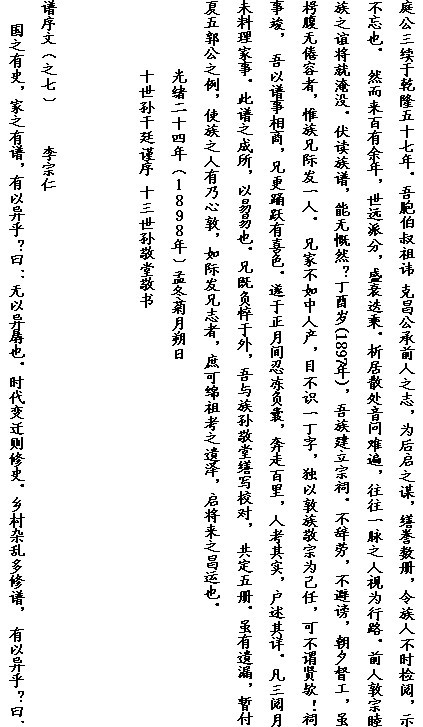 庭公三续于乾隆五十七年。吾胞伯叔祖讳 克昌公承前人之志，为后启之谋，缮誊数册，令族人不时检阅，示
不忘也。 然而来百有余年，世远派分，盛衰迭乘。析居散处音问难遍，往往一脉之人视为行路。前人敦宗睦
族之谊将就淹没。伏读族谱，能无慨然？丁酉岁(1897年)，吾族建立宗祠。不辞劳，不避谤，朝夕督工，虽
枵腹无倦容者，惟族兄际发一人。 兄家不如中人产，目不识一丁字，独以敦族敬宗为己任，可不谓贤欤！祠
事竣， 吾以谱事相商，兄更踊跃有喜色。遂于正月间忍冻负囊，奔走百里，人考其实，户述其详。凡三阅月
未料理家事。此谱之成所，以易易也。兄既负悴于外，吾与族孙敬堂缮写校对， 共定五册。虽有遗漏，暂付
夏五郭公之例，使族之人有乃心敦，如际发兄志者，庶可绵祖考之遗泽，启将来之昌运也。
光绪二十四年（1898年）孟冬菊月朔日
十世孙干廷谨序 十三世孙敬堂敬书
谱序文（之七） 李宗仁
国之有史，家之有谱，有以异乎？曰：无以异孱也。时代变迁则修史。乡村杂乱多修谱， 有以异乎？曰：